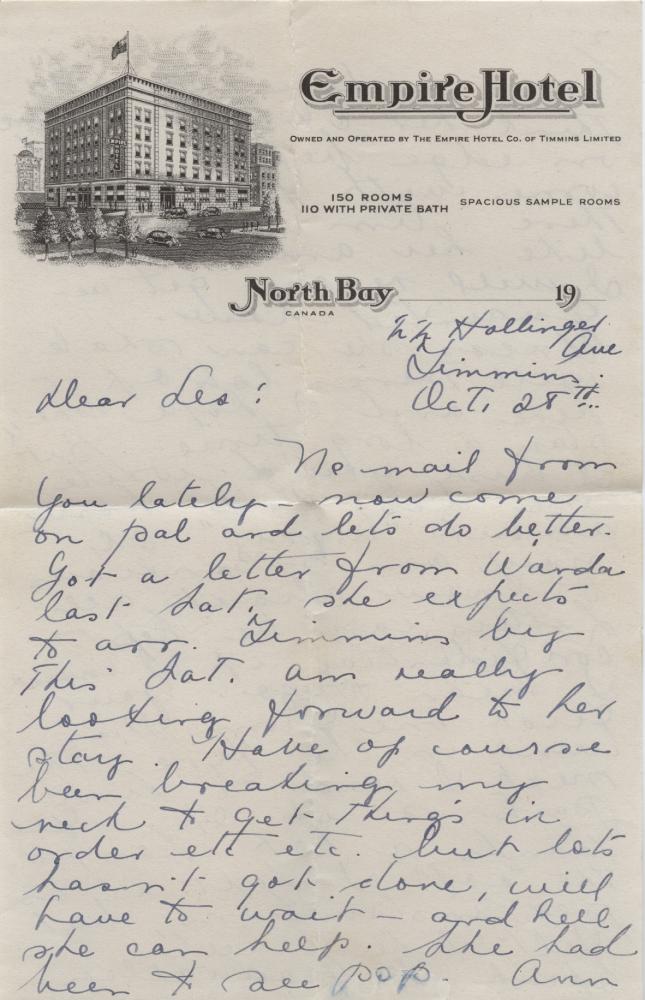 Empire Hotel
OWNED AND OPERATED BY THE EMPIRE HOTEL CO. OF TIMMINS LIMITED
150 ROOMS
110 WITH PRIVATE BATH
SPACIOUS SAMPLE ROOMS
North Bay 19
CANADA
Hollinger
Ave
Timmins.
Oct. 28th.
Dear Les!
No mail from
you lately - now come
on pal and let's do better.
Got a letter from Warda
last Sat. she expects
to arr. Timmins by
this Sat. am really
looking forward to her
stay. Have of course
been breaking my
neck to get things in
order etc etc. but lots
hasn't got done, will
have to wait - and hell
she can help. She had
been to see pop. Ann